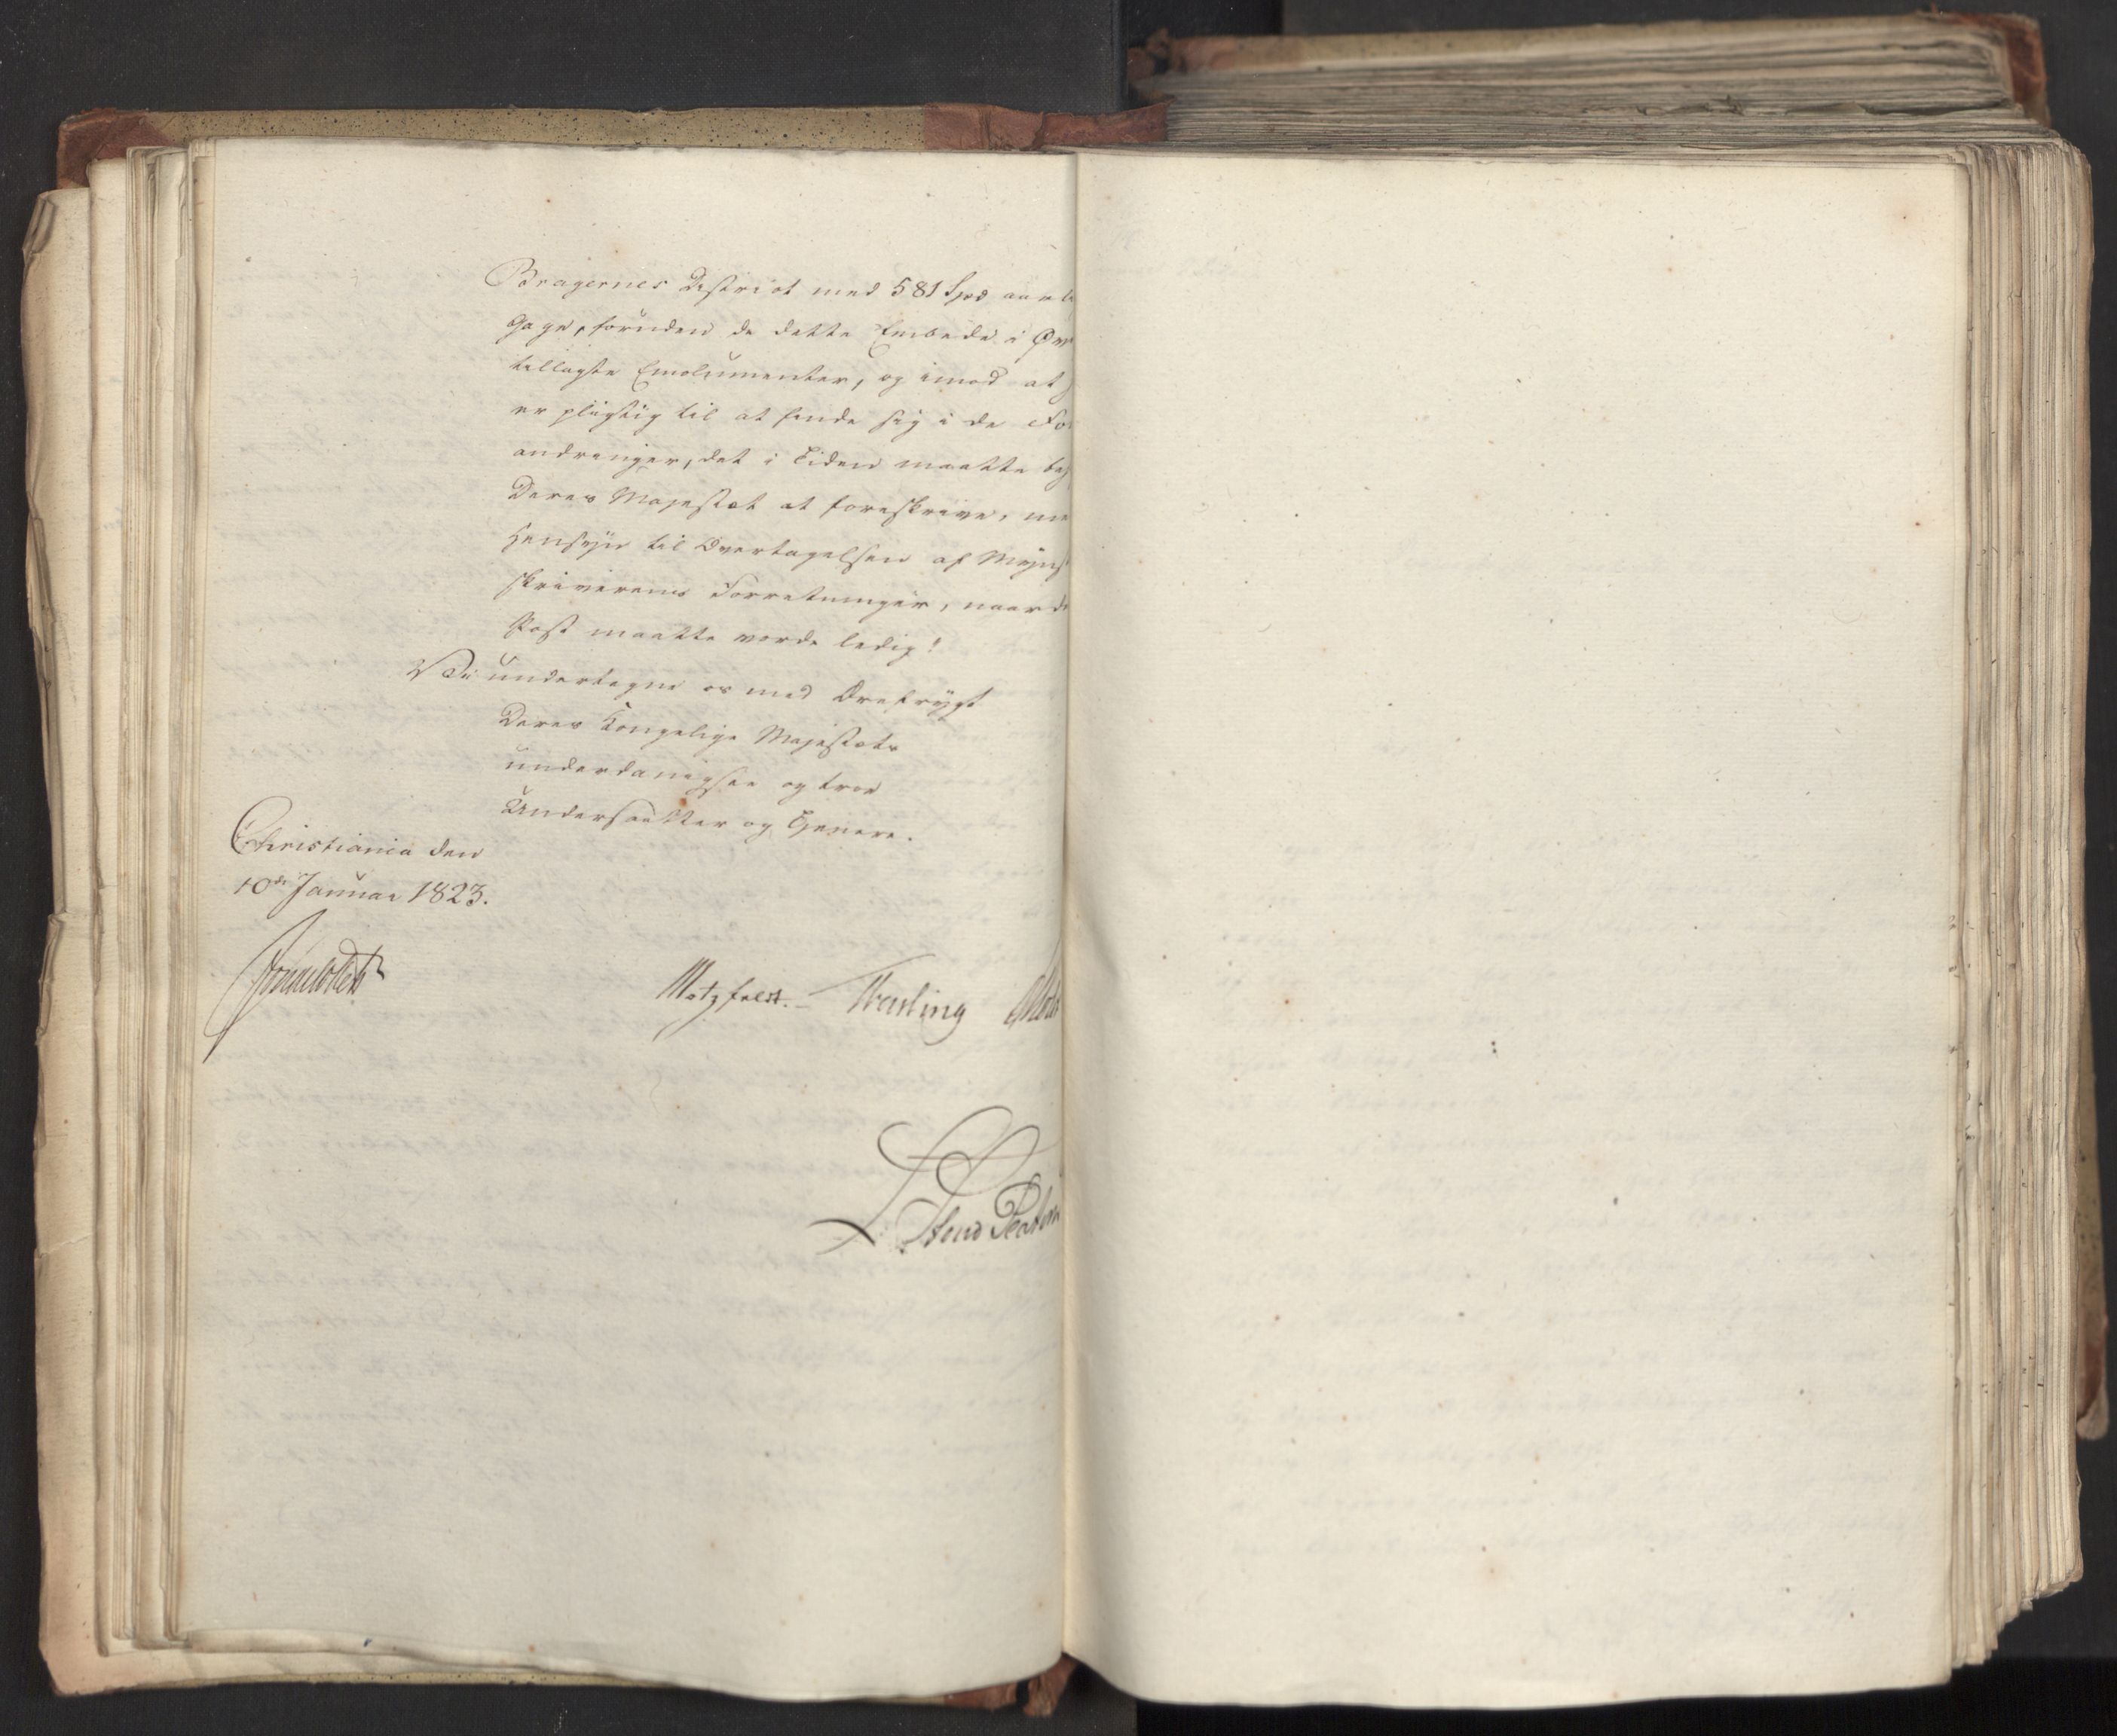 Bragernes District med 581 Spd aarli
Gage, foruden de dette Embede i Øv
tillagte Emolumenter, og imod at
er pligtig til at finde sig i de For
andringer, det i Tiden maatte beh
Deres Majestæt at foreskrive, me
Hensyn til Overtagelsen af Mynt
skriverens Forretninger, naar d
Post maatte vorde ledig!
Vi undertegne os med Ærefrygt
Deres Kongelige Majestæts
underdanigste og troe
Undersaatter og Tjenere.
Christiania den
10de Januar 1823.
Motzfeldt. Treschow